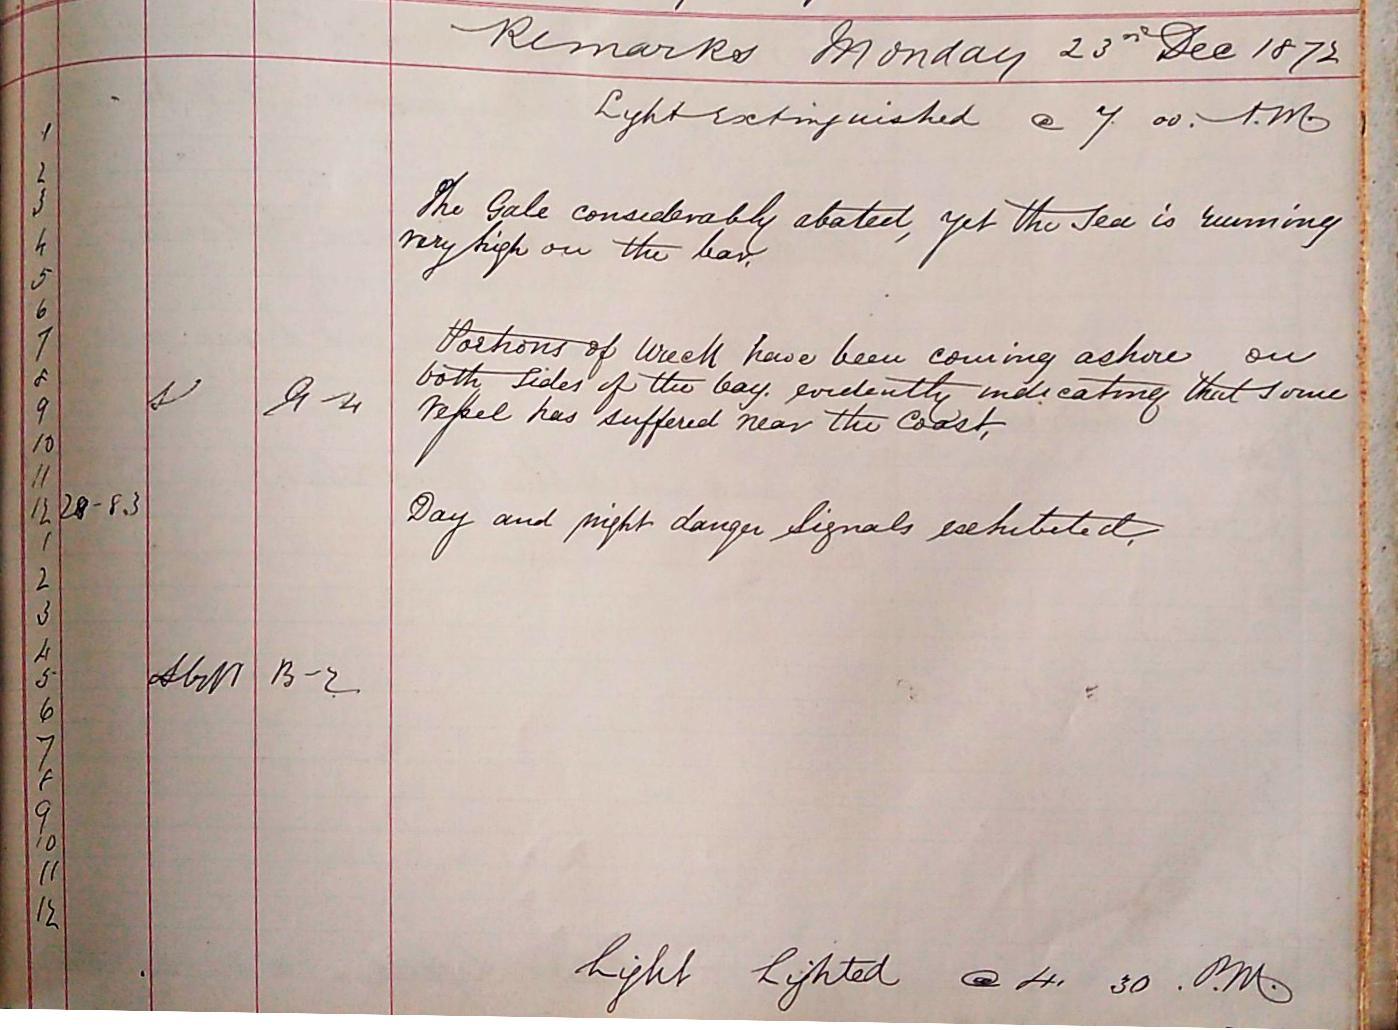 Remarks Monday 23rd Dec 1872
Light Extinguished @ 7. 00. A.M.
1
2
3
The Gale considerably abated, yet the Sea is running
4
very high on the bar.
5
6
7
Portions of Wreck have been coming ashore on
8
both sides of the bay. evidently indicating that some
9 S G-4
vessel has suffered near the Coast,
10
11
12 28-8.3
Day and night danger Signals exhibited.
1
2
3
4
5 SbyW B-2
6
7
8
9
10
11
12
Light Lighted @ 4. 30. P.M.